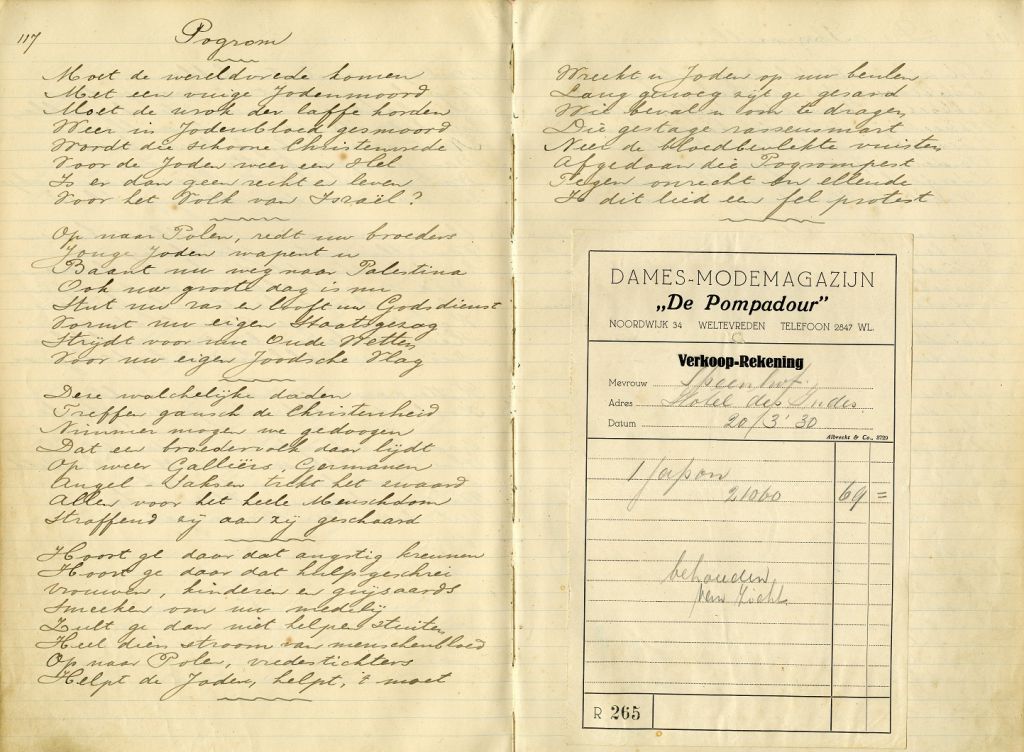 117
Pogrom
Moet de wereldvrede komen
Met een vuige Jodenmoord
Moet de wrok der laffe horden
Weer in Jodenbloed gesmoord
Wordt die schoone Christenvrede
Voor de Joden weer een Hel
Is er dan geen recht en leven
Voor het Volk van Israël?
Op naar Polen, redt uw broeders
Jonge Joden wapent u
Baant uw weg naar Palestina
Ook uw groote dag is nu
Stut uw ras en looft uw Godsdienst
Vormt uw eigen Staatsgezag
Strijdt voor uwe Oude Wetten
Voor uw eigen Joodsche Vlag
Deze walchelijke daden
Treffen gansch de Christenheid
Nimmer mogen we gedoogen
Dat een broedervolk daar lijdt
Op weer Galliërs, Germanen
Angel-Saksen trekt het zwaard
Allen voor het heele Menschdom
Straffend zij aan zij geschaard
Hoort ge daar dat angstig kreunen
Hoort ge daar dat hulpgeschrei
Vrouwen, kinderen en grijsaards
Smeeken om uw medelij
Zult ge dan niet helpen stuiten
Heel dien stroom van menschenbloed
Op naar Polen, vredestichters
Helpt de Joden, helpt, 't moet
Wreekt u Joden op uw beulen
Lang genoeg zijt ge gesard
Wie beval u om te dragen
Die gestage rassensmart
Neer de bloedbevlekte vuisten
Afgedaan die Pogrompest
Tegen onrecht en ellende
Is dit lied een fel protest
DAMES-MODEMAGAZIJN
„De Pompadour"
NOORDWIJK 34 WELTEVREDEN TELEFOON 2847 WL.
Verkoop-Rekening
Mevrouw Speenhof
Adres Hotel des Indes
Datum 20/3 '30
Albrecht & Co., 3729
1 Japon
21060 69 =
behouden
R 265